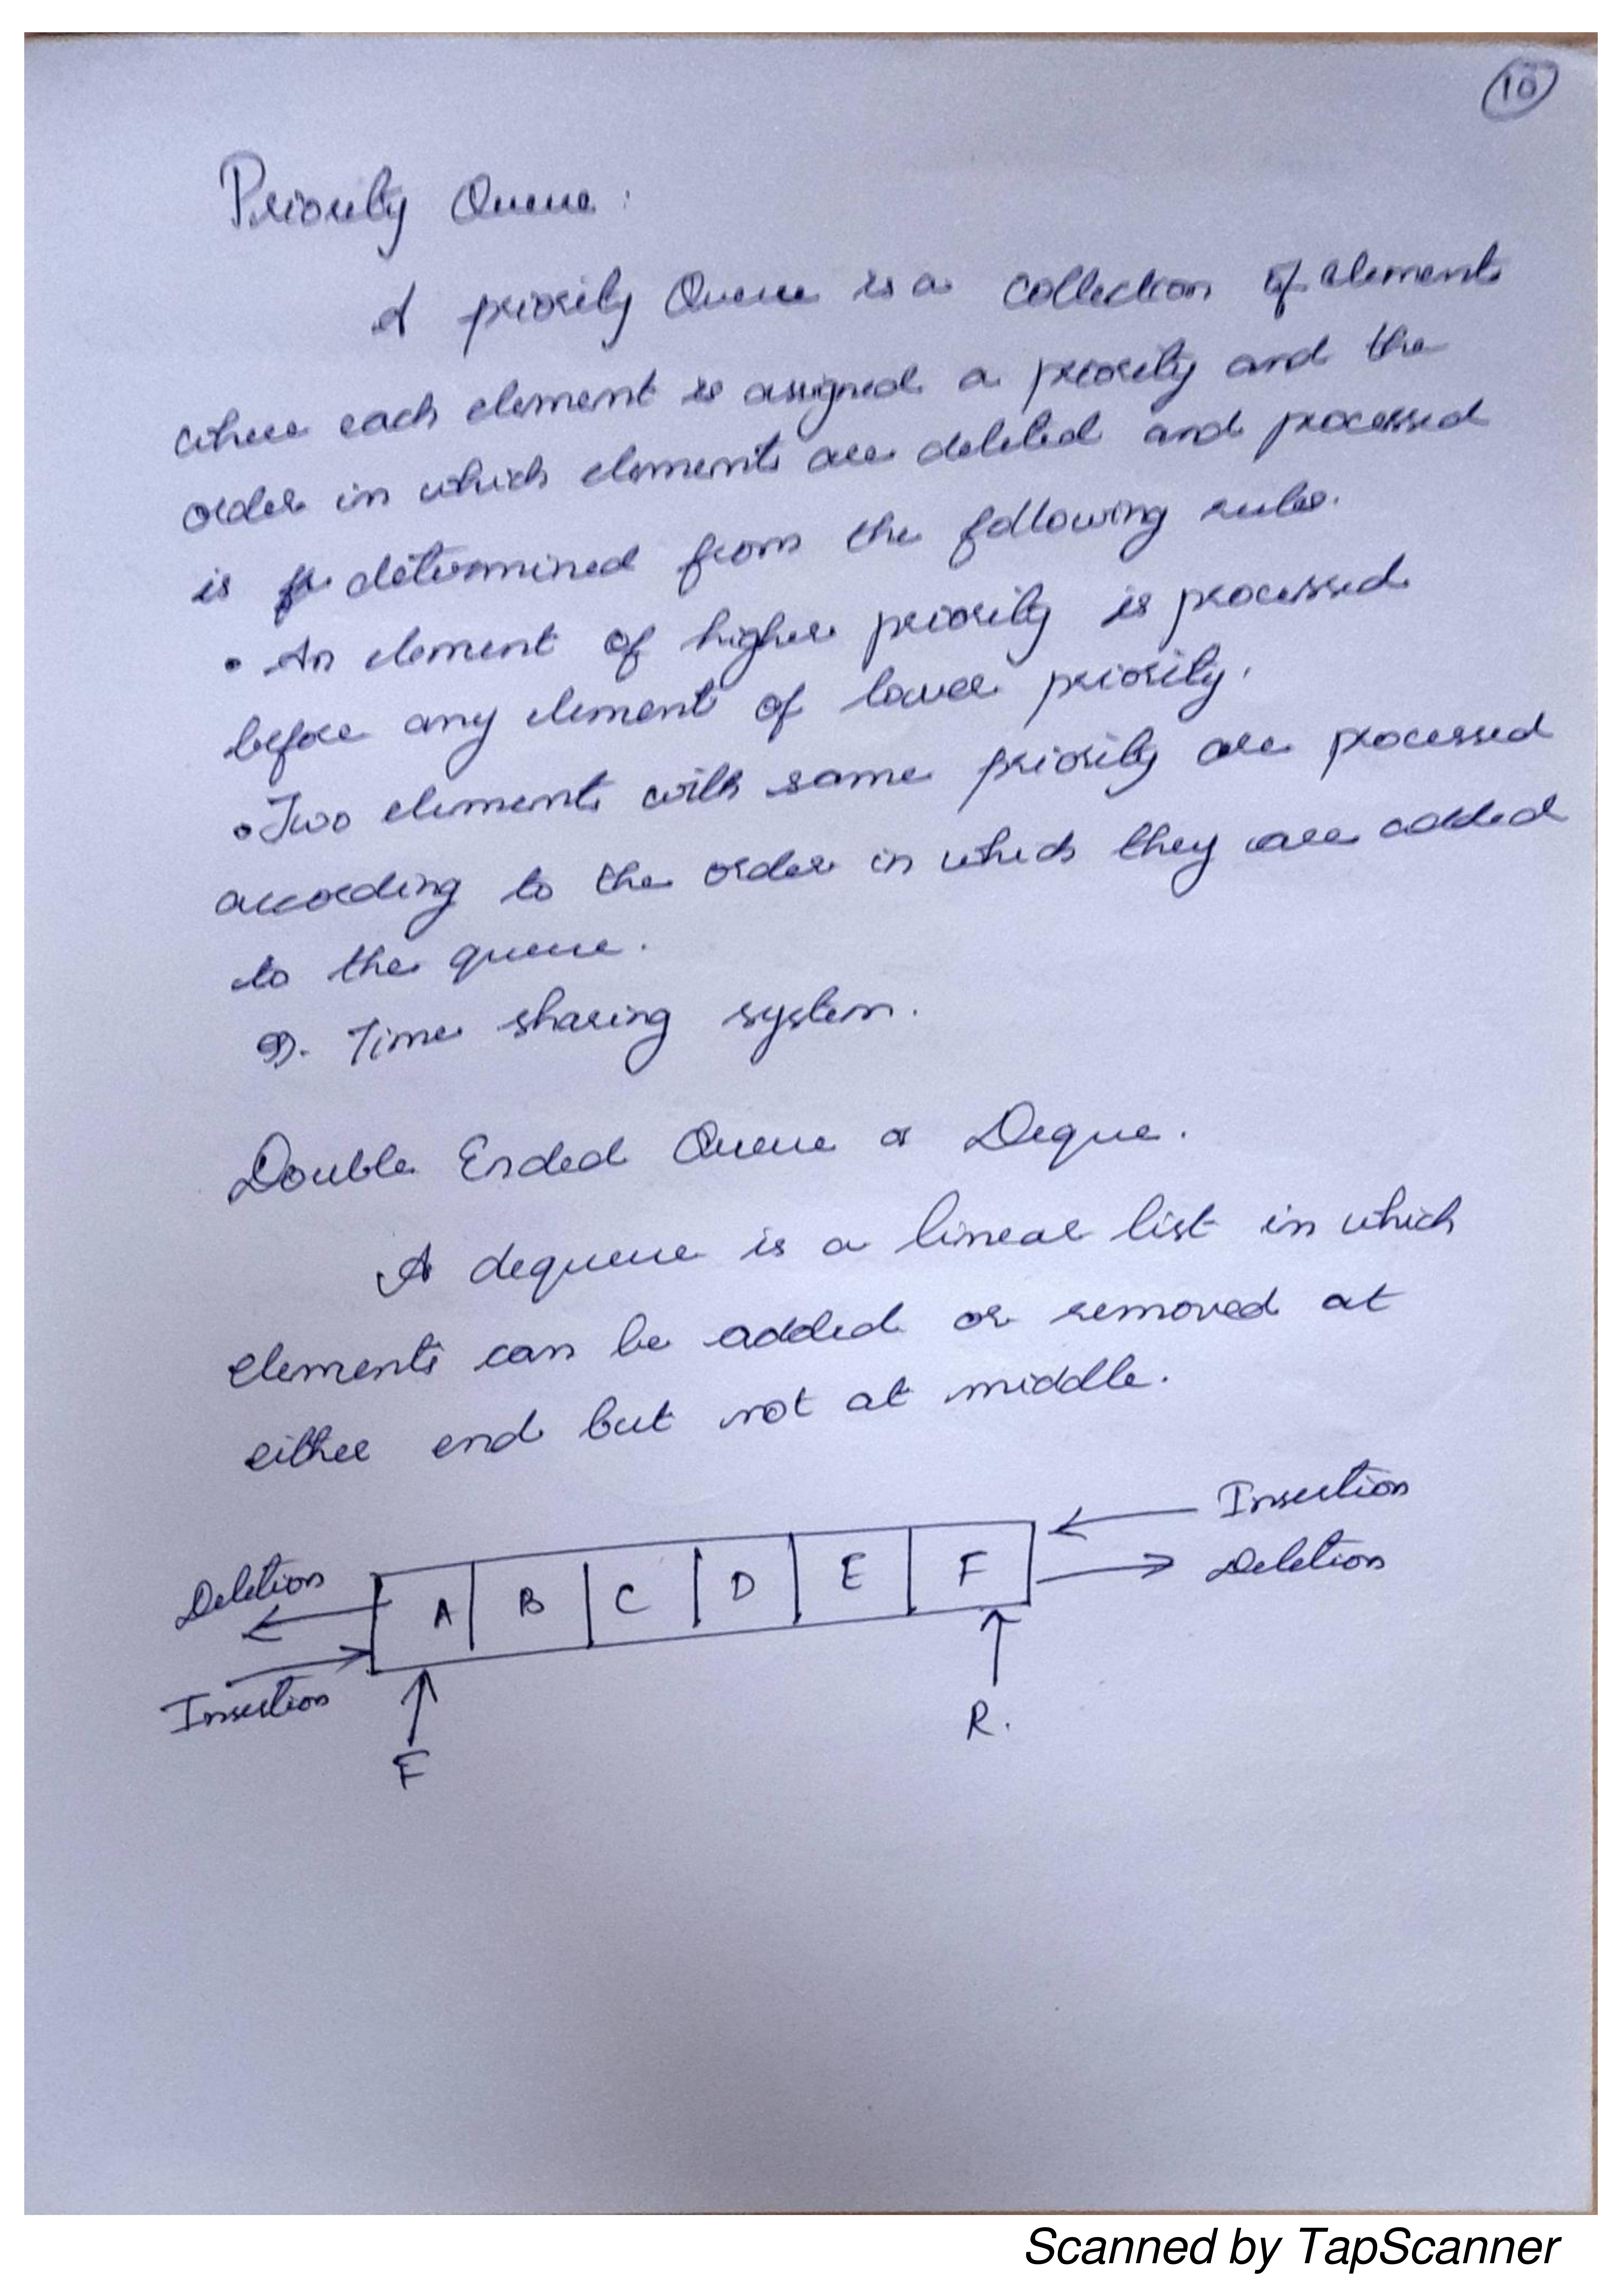 10
Priority Queue :
A priority Queue is a collection of elements
where each element is assigned a priority and the
order in which elements are deleted and processed
is determined from the following rules.
• An element of higher priority is processed
before any element of lower priority.
• Two elements with same priority are processed
according to the order in which they are added
to the queue.
Time sharing system.
Double Ended Queue or Deque.
A dequeue is a linear list in which
elements can be added or removed at
either end but not at middle.
Insertion
Deletion
Deletion
A B C D E F
Insertion
F
R.
Scanned by TapScanner